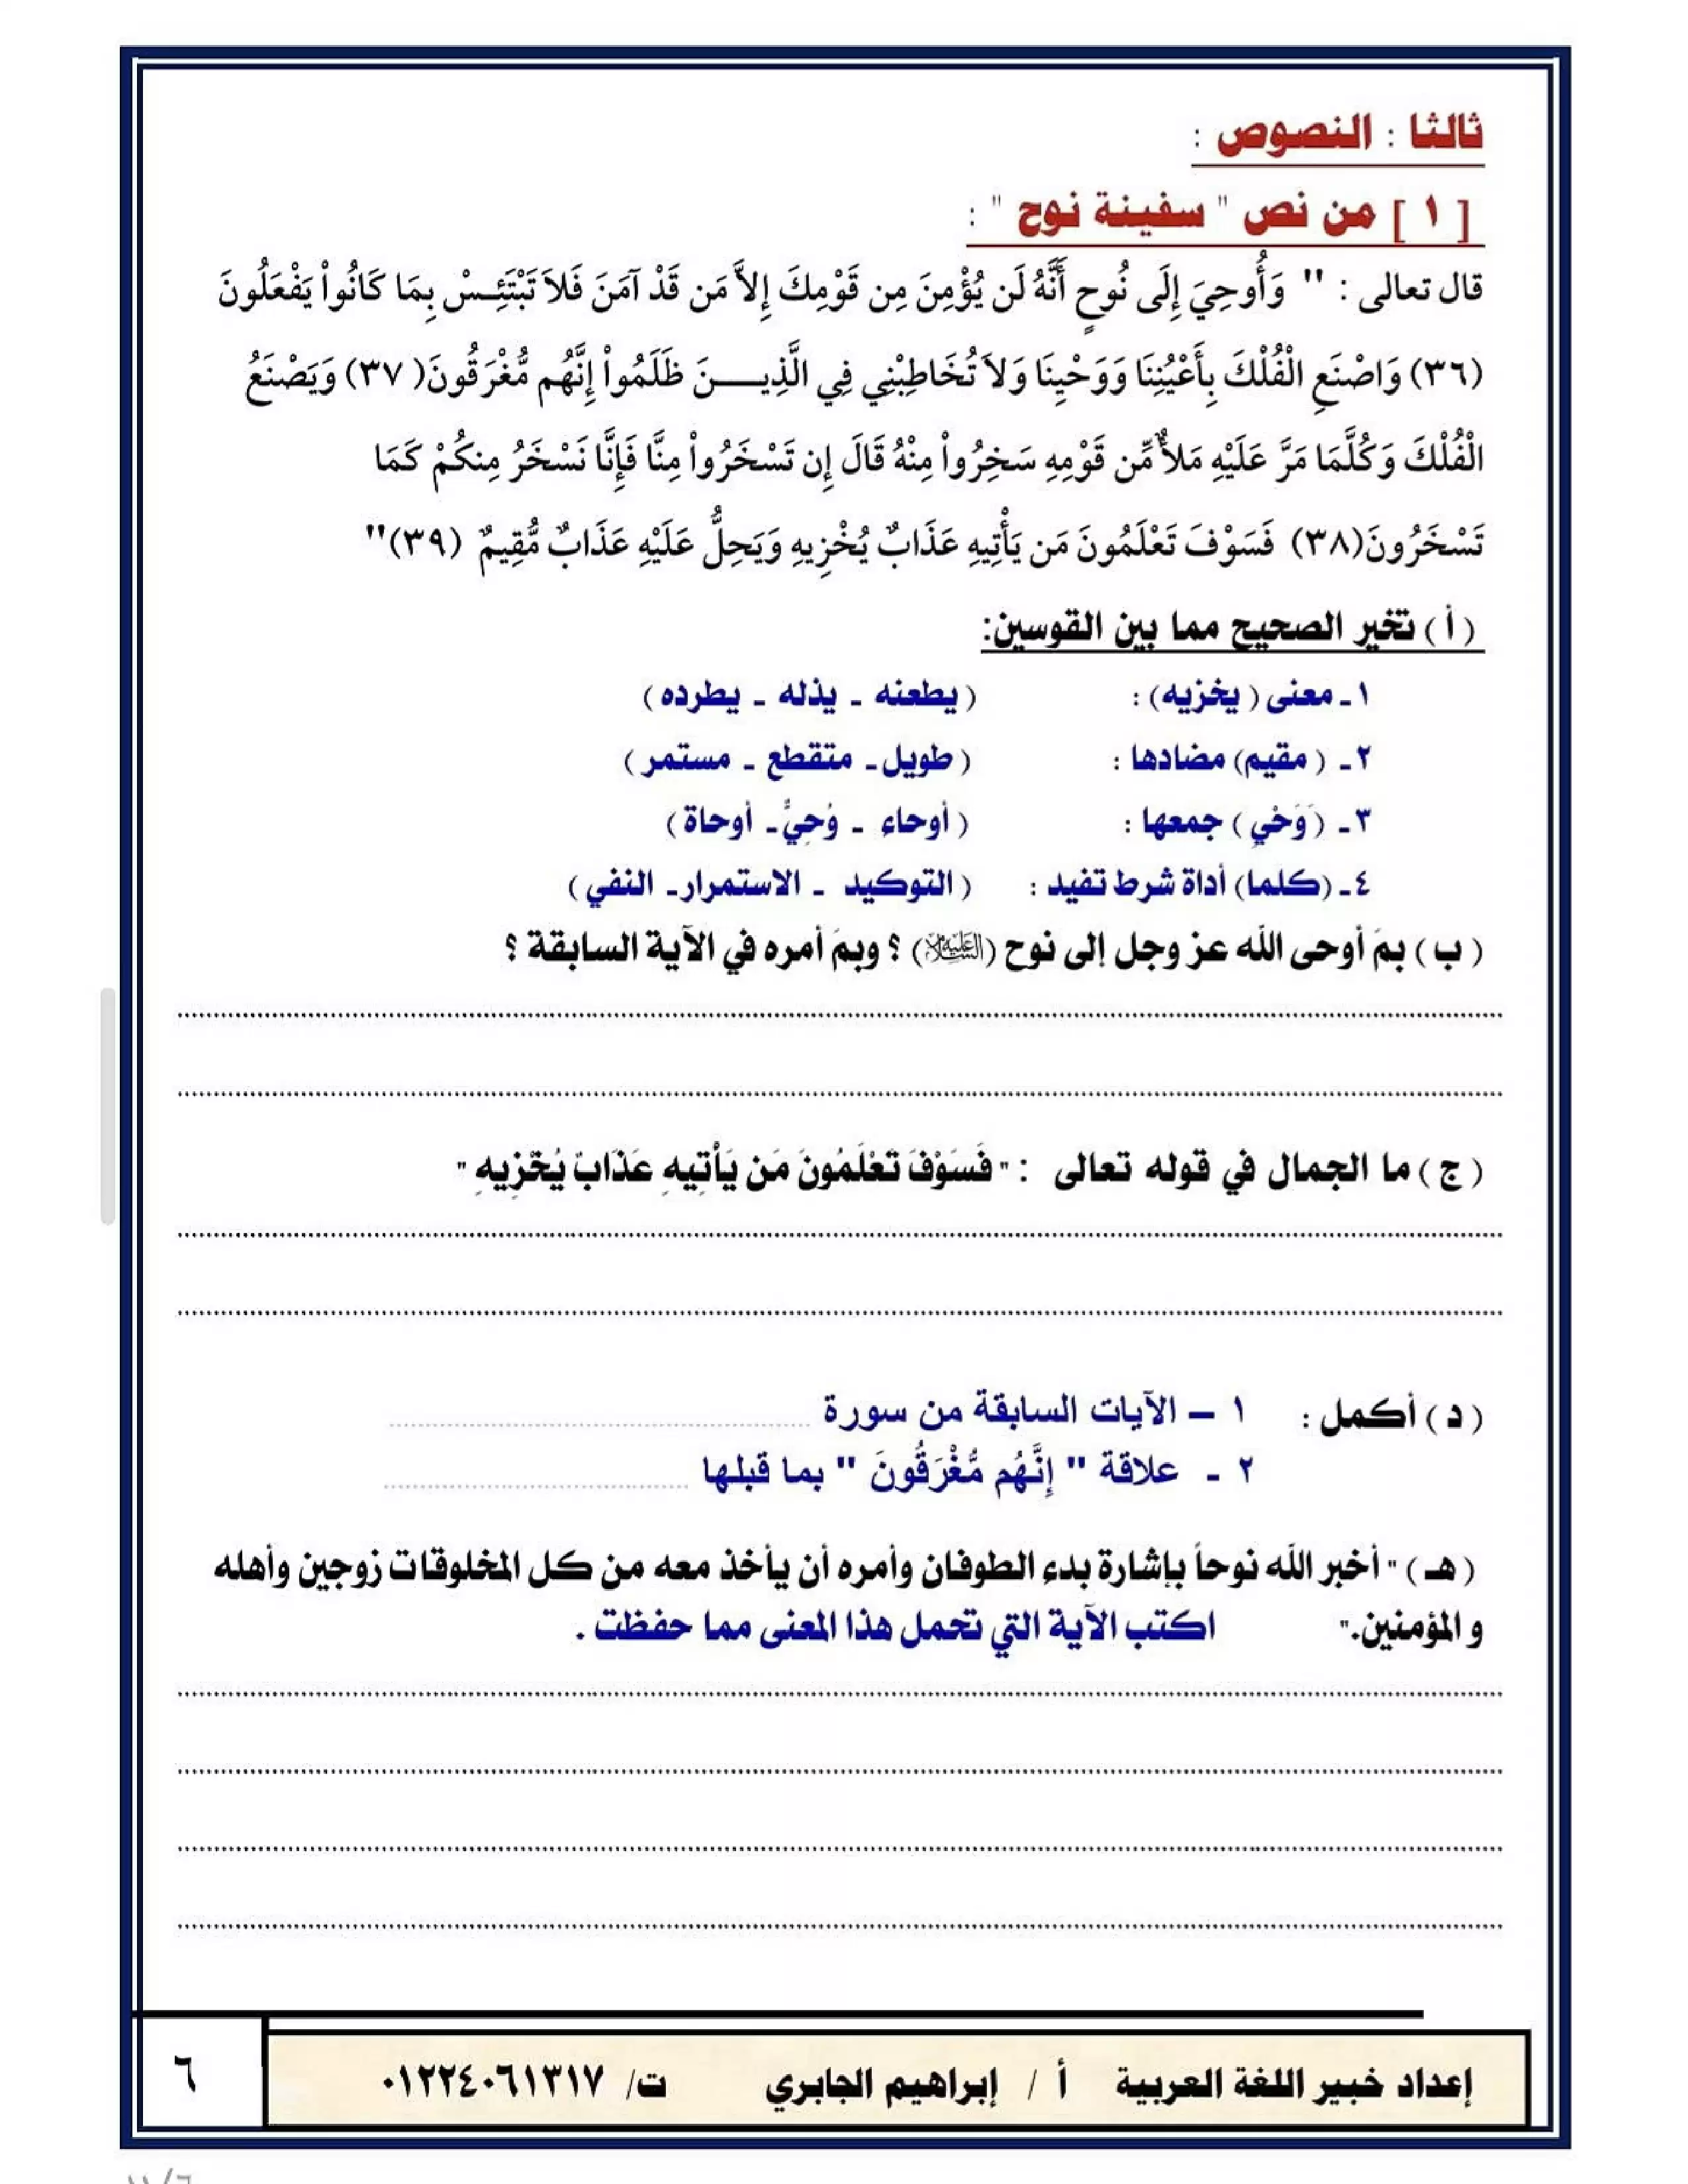 ثالثا : النصوص :
[ ١ ] من نص " سفينة نوح " :
قال تعالى : " وَأُوحِيَ إِلَى نُوحٍ أَنَّهُ لَن يُؤْمِنَ مِن قَوْمِكَ إِلاَّ مَن قَدْ آمَنَ فَلاَ تَبْتَئِسْ بِمَا كَانُواْ يَفْعَلُونَ
(٣٦) وَاصْنَعِ الْفُلْكَ بِأَعْيُنِنَا وَوَحْيِنَا وَلاَ تُخَاطِبْنِي فِي الَّذِيـــنَ ظَلَمُواْ إِنَّهُم مُّغْرَقُونَ( ٣٧) وَيَصْنَعُ
الْفُلْكَ وَكُلَّمَا مَرَّ عَلَيْهِ مَلأٌ مِّن قَوْمِهِ سَخِرُواْ مِنْهُ قَالَ إِن تَسْخَرُواْ مِنَّا فَإِنَّا نَسْخَرُ مِنكُمْ كَمَا
تَسْخَرُونَ(٣٨) فَسَوْفَ تَعْلَمُونَ مَن يَأْتِيهِ عَذَابٌ يُخْزِيهِ وَيَحِلُّ عَلَيْهِ عَذَابٌ مُّقِيمٌ (٣٩)"
( أ ) تخير الصحيح مما بين القوسين:
١ـ معنى ( يخزيه) : ( يطعنه ـ يذله ـ يطرده )
٢ـ ( مقيم) مضادها : ( طويل ـ متقطع ـ مستمر )
٣ـ ( وَحْيِ ) جمعها : ( أوحاء ـ وُحِيٌّ ـ أوحاة )
٤ـ (كلما) أداة شرط تفيد : ( التوكيد ـ الاستمرار ـ النفي )
( ب ) بمَ أوحى الله عز وجل إلى نوح (عليه السلام) ؟ وبمَ أمره في الآية السابقة ؟
( ج ) ما الجمال في قوله تعالى : " فَسَوْفَ تَعْلَمُونَ مَن يَأْتِيهِ عَذَابٌ يُخْزِيهِ "
( د ) أكمل : ١ – الآيات السابقة من سورة
٢ - علاقة " إِنَّهُم مُّغْرَقُونَ " بما قبلها
( هـ ) " أخبر الله نوحاً بإشارة بدء الطوفان وأمره أن يأخذ معه من كل المخلوقات زوجين وأهله
و المؤمنين." اكتب الآية التي تحمل هذا المعنى مما حفظت .
إعداد خبير اللغة العربية أ / إبراهيم الجابري ت/ ٠١٢٢٤٠٦١٣١٧
٦